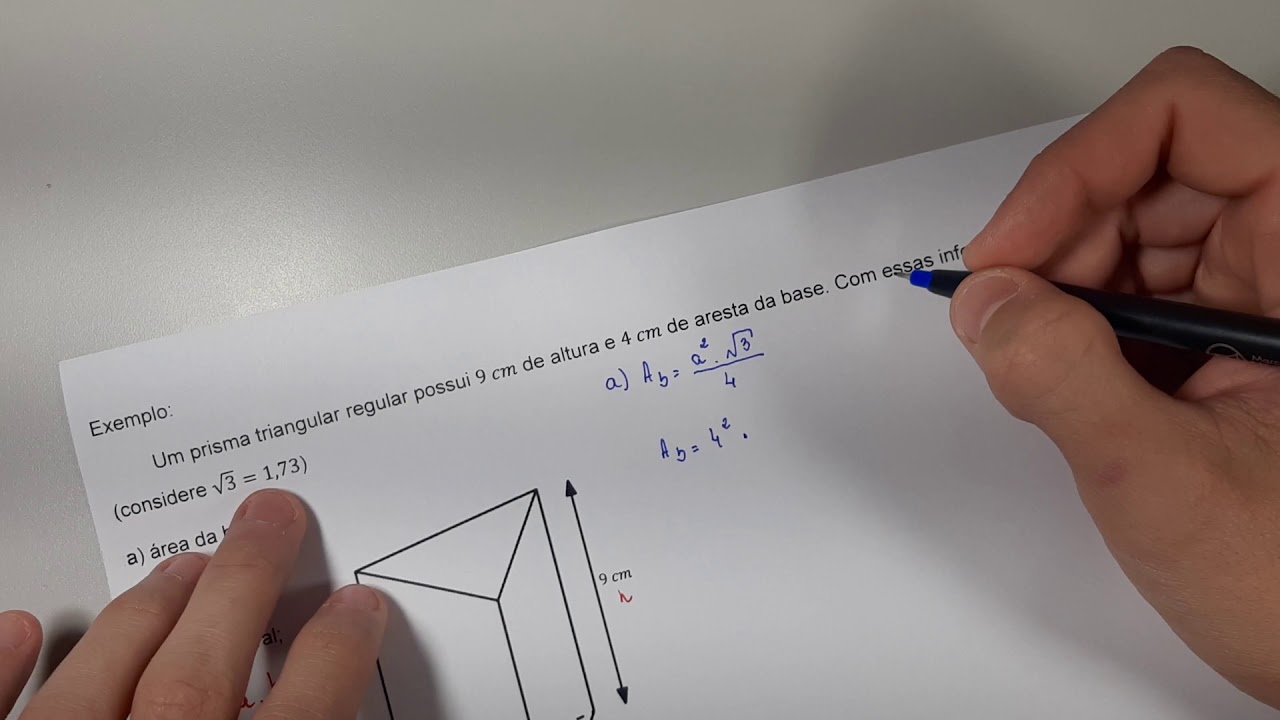 Exemplo:
Um prisma triangular regular possui 9 cm de altura e 4 cm de aresta da base. Com essas
(considere √3 = 1,73)
a) área da
a) Ab = a² . √3 / 4
Ab = 4² .
9 cm
h
al;